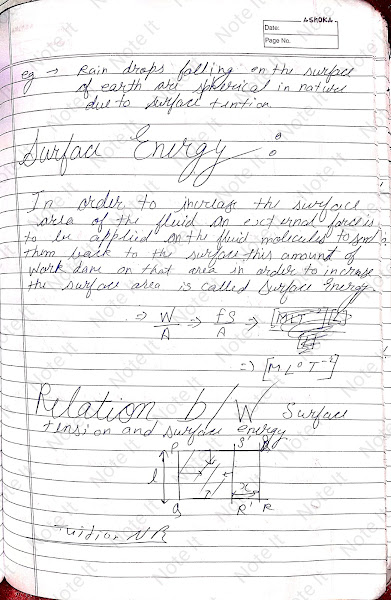 ASHOKA
Date:
Page No.
eg → Rain drops falling on the surface
of earth are spherical in nature
due to surface tention
Surface Energy :
In order to increase the surface
area of the fluid an external force is
to be applied on the fluid molecules to send
them back to the surface this amount of
work done on that area in order to increase
the surface area is called Surface Energy.
⇒ W/A → fS/A →
⇒ [ML⁰T⁻²]
Relation b/W Surface
tension and surface energy
P S' S
l x
Q R' R
Note It